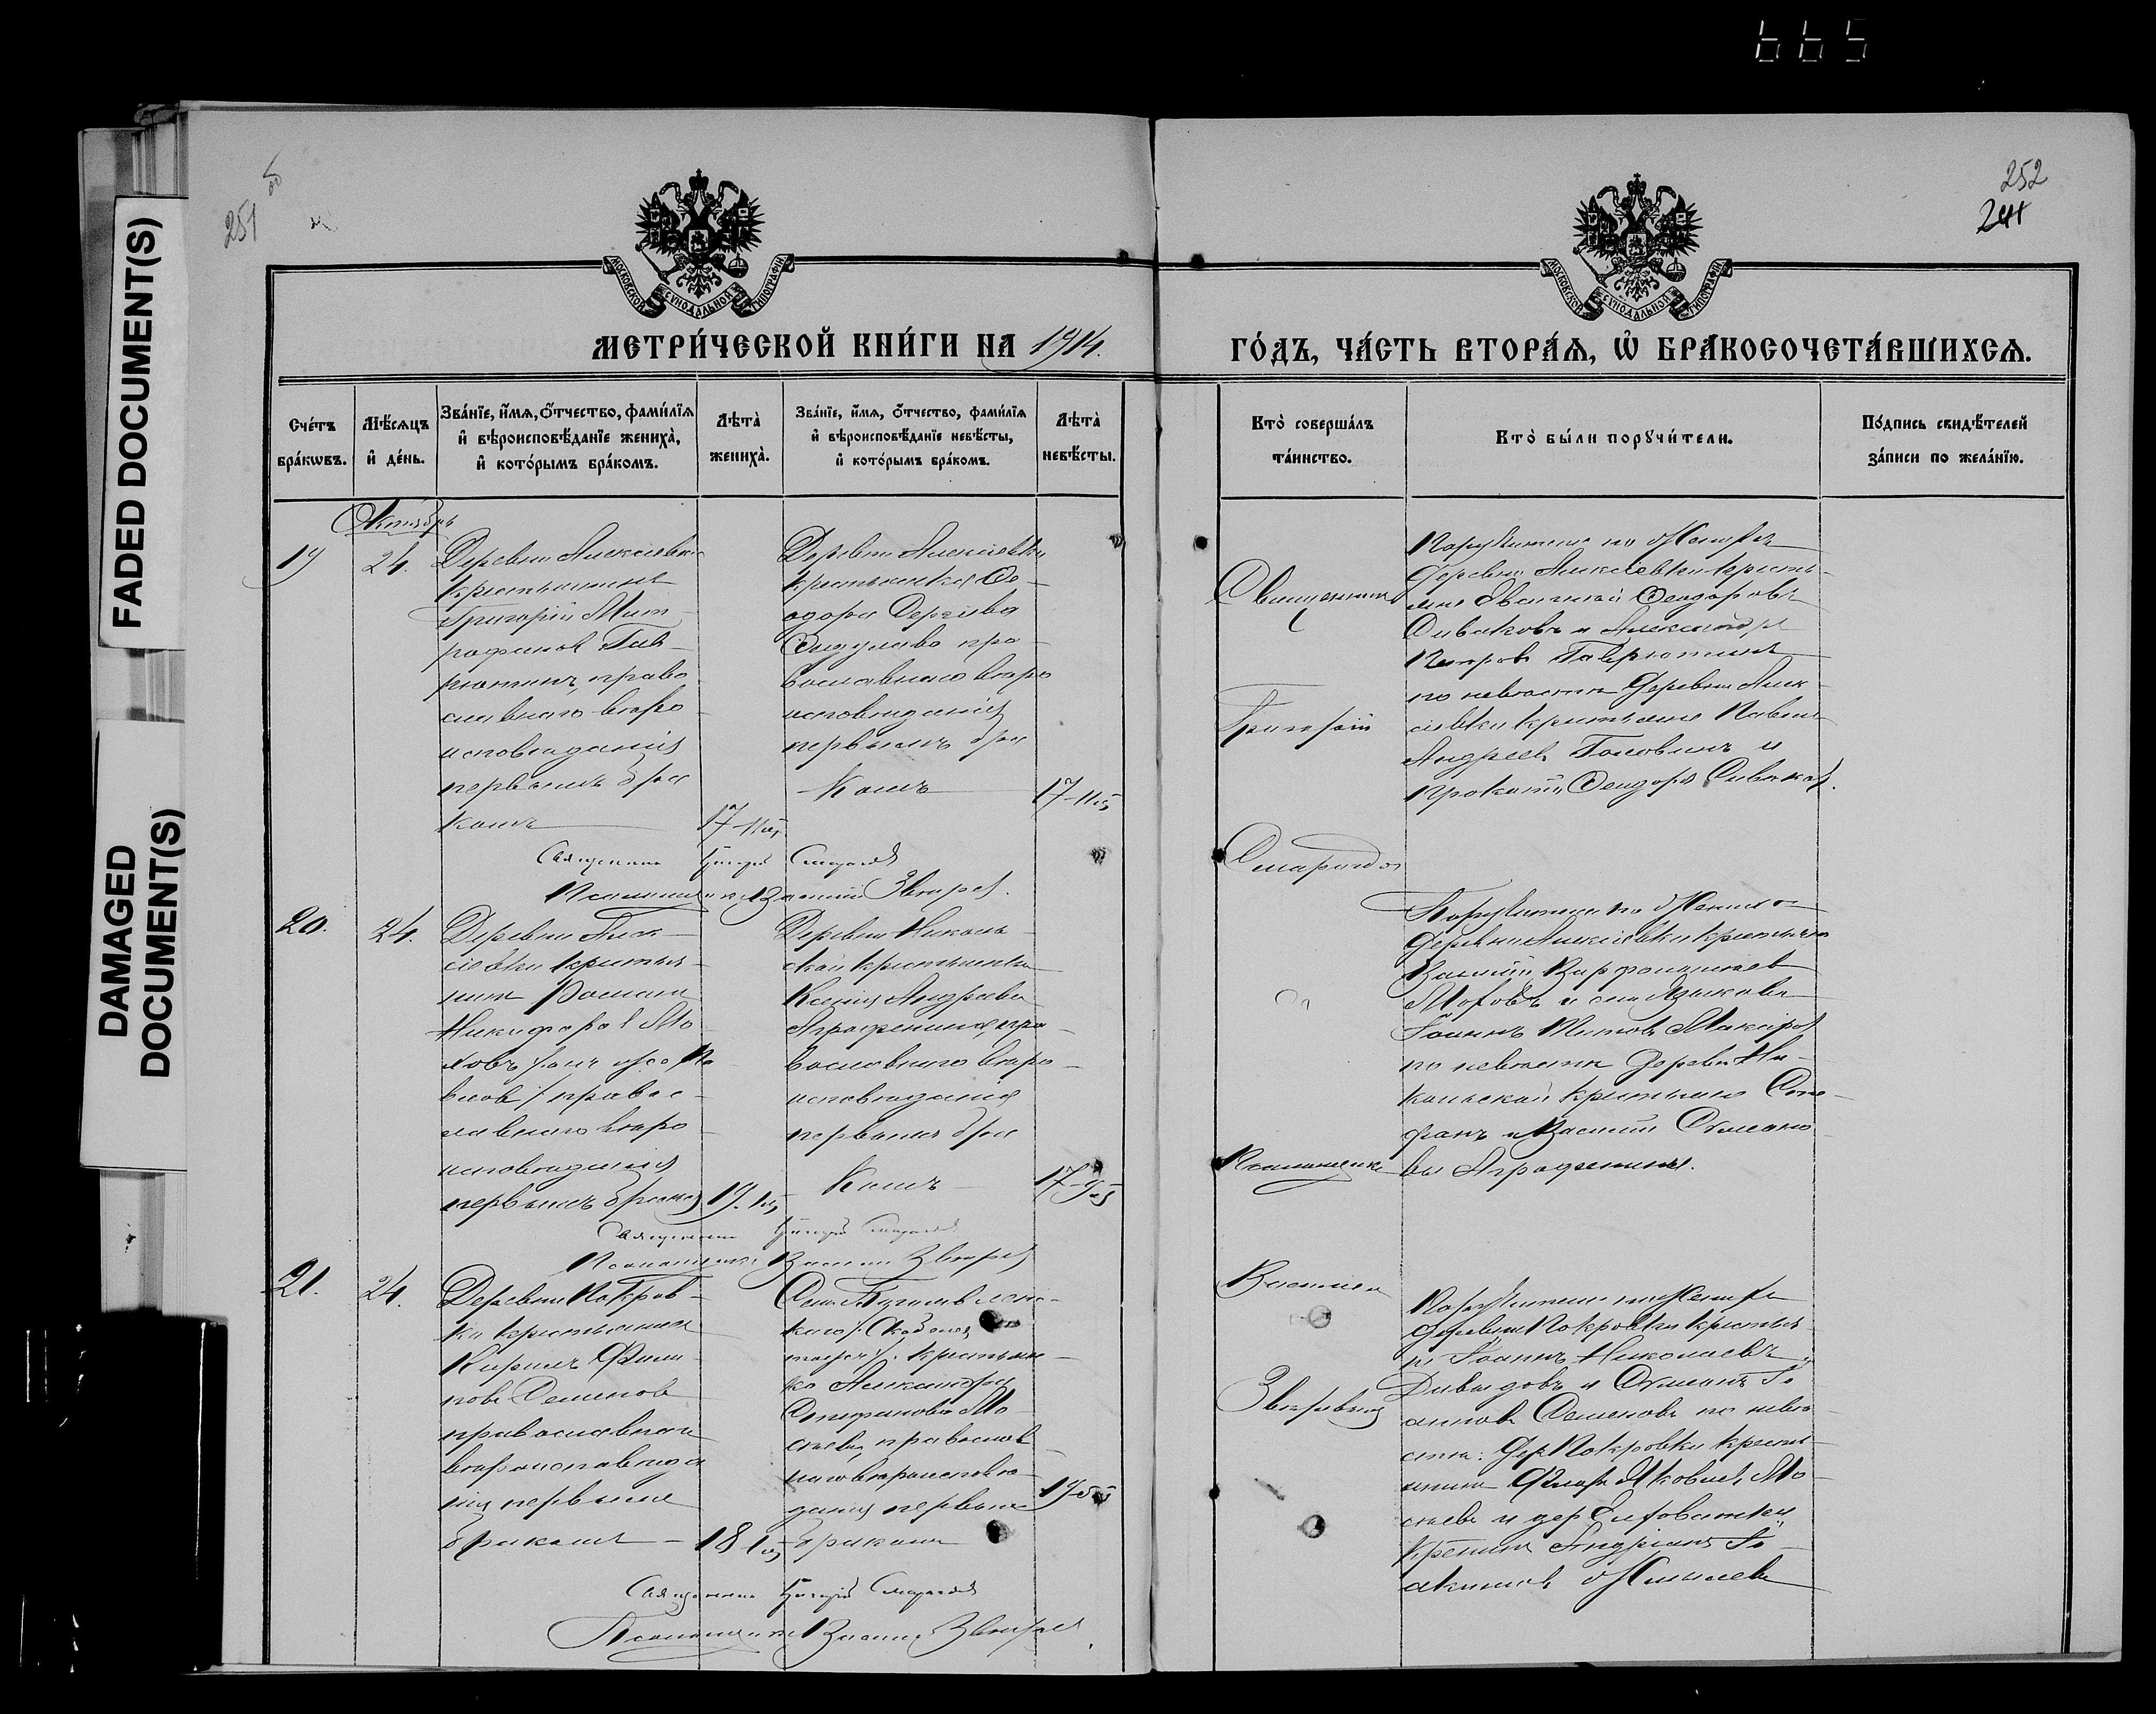 665
FADED DOCUMENT(S)
DAMAGED
DOCUMENT(S)
251
252
241
МОСКОВСКОЙ СѴНОДАЛЬНОЙ ТИПОГРАФІИ
МОСКОВСКОЙ СѴНОДАЛЬНОЙ ТИПОГРАФІИ
МЕТРИ́ЧЕСКОЙ КНИ́ГИ НА 1914.
ГО́ДЪ, ЧА́СТЬ ВТОРА́Ѧ, Ѡ҆ БРАКОСОЧЕТА́ВШИХСѦ.
Сче́тъ
бра́кѡвъ.
Мѣ́сѧцъ
и҆ де́нь.
Зва́нїе, и҆́мѧ, ѻ҆́тчество, фами́лїѧ
и҆ вѣроисповѣ́данїе жениха̀,
и҆ кото́рымъ бра́комъ.
Лѣта̀
жениха̀.
Зва́нїе, и҆́мѧ, ѻ҆́тчество, фами́лїѧ
и҆ вѣроисповѣ́данїе невѣ́сты,
и҆ кото́рымъ бра́комъ.
Лѣта̀
невѣ́сты.
Кто̀ соверша́лъ
та́инство.
Кто̀ бы́ли порꙋчи́тели.
По́дпись свидѣ́телей
за́писи по жела́нїю.
Октябрь
19
24.
Деревни Алексѣевки
крестьянинъ
Григорій Мит-
рофановъ Гав-
рютинъ, право
славнаго вѣро
исповѣданія
первымъ бра
комъ
17-
Деревни Алексѣевки
крестьянка Ѳе-
одора Сергѣева
пра-
вославнаго вѣро
исповѣданія
первымъ бра
комъ
17-
Священникъ
Григорій
Смарагдов
Поручители по женихѣ
деревни Алексѣевки кресть-
яне Ѳеодоровъ
Сиваковъ и Александръ
Петровъ Гаврютинъ
по невѣстѣ деревни Алек-
сѣевки крестьяне Павелъ
Андреевъ Головинъ и
Прокопій Ѳеодоровъ Сиваковъ.
Священникъ Григорій Смарагдовъ
Псаломщикъ Василій Звѣревъ.
20.
24.
Деревни Алек-
сѣевки крестья-
нинъ Романъ
Никифоровъ Мо
ховъ
православнаго вѣро
исповѣданія
первымъ бракомъ
19.
Деревни Николь-
ской крестьянка
Ксенія Андреева
Аграфенина, пра-
вославнаго вѣро-
исповѣданія
первымъ бра
комъ
17-
Поручители по женихѣ
деревни Алексѣевки крестьяне
Василій Варфоломеевъ
Моховъ и села Языкова
Іоаннъ Титовъ Макаровъ
по невѣстѣ деревни Ни-
кольской крестьяне Сте-
фанъ и Василій Симеоно
вы Аграфенины.
Псаломщикъ
Василій
Звѣревъ
Священникъ Григорій Смарагдовъ
Псаломщикъ Василій Звѣревъ
21.
24.
Деревни Покров-
ки крестьянинъ
Кириллъ Филип-
повъ Семеновъ
православнаго
вѣроисповѣда
нія первымъ
бракомъ - 18
крестьян-
ка Александра
Стефанова Мо-
сѣева, православ-
наго вѣроисповѣ-
данія первымъ
бракомъ
19
Поручители по женихѣ
деревни Покровки крестья-
не Іоаннъ Николаевъ
Давыдовъ и Симеонъ Іо-
анновъ Семеновъ по невѣ-
стѣ: дер. Покровки кресть-
янинъ Яковлевъ Мо-
сѣевъ и дер.
крестьянинъ Андріанъ Іо-
акимовъ
Священникъ Григорій Смарагдовъ
Псаломщикъ Василій Звѣревъ